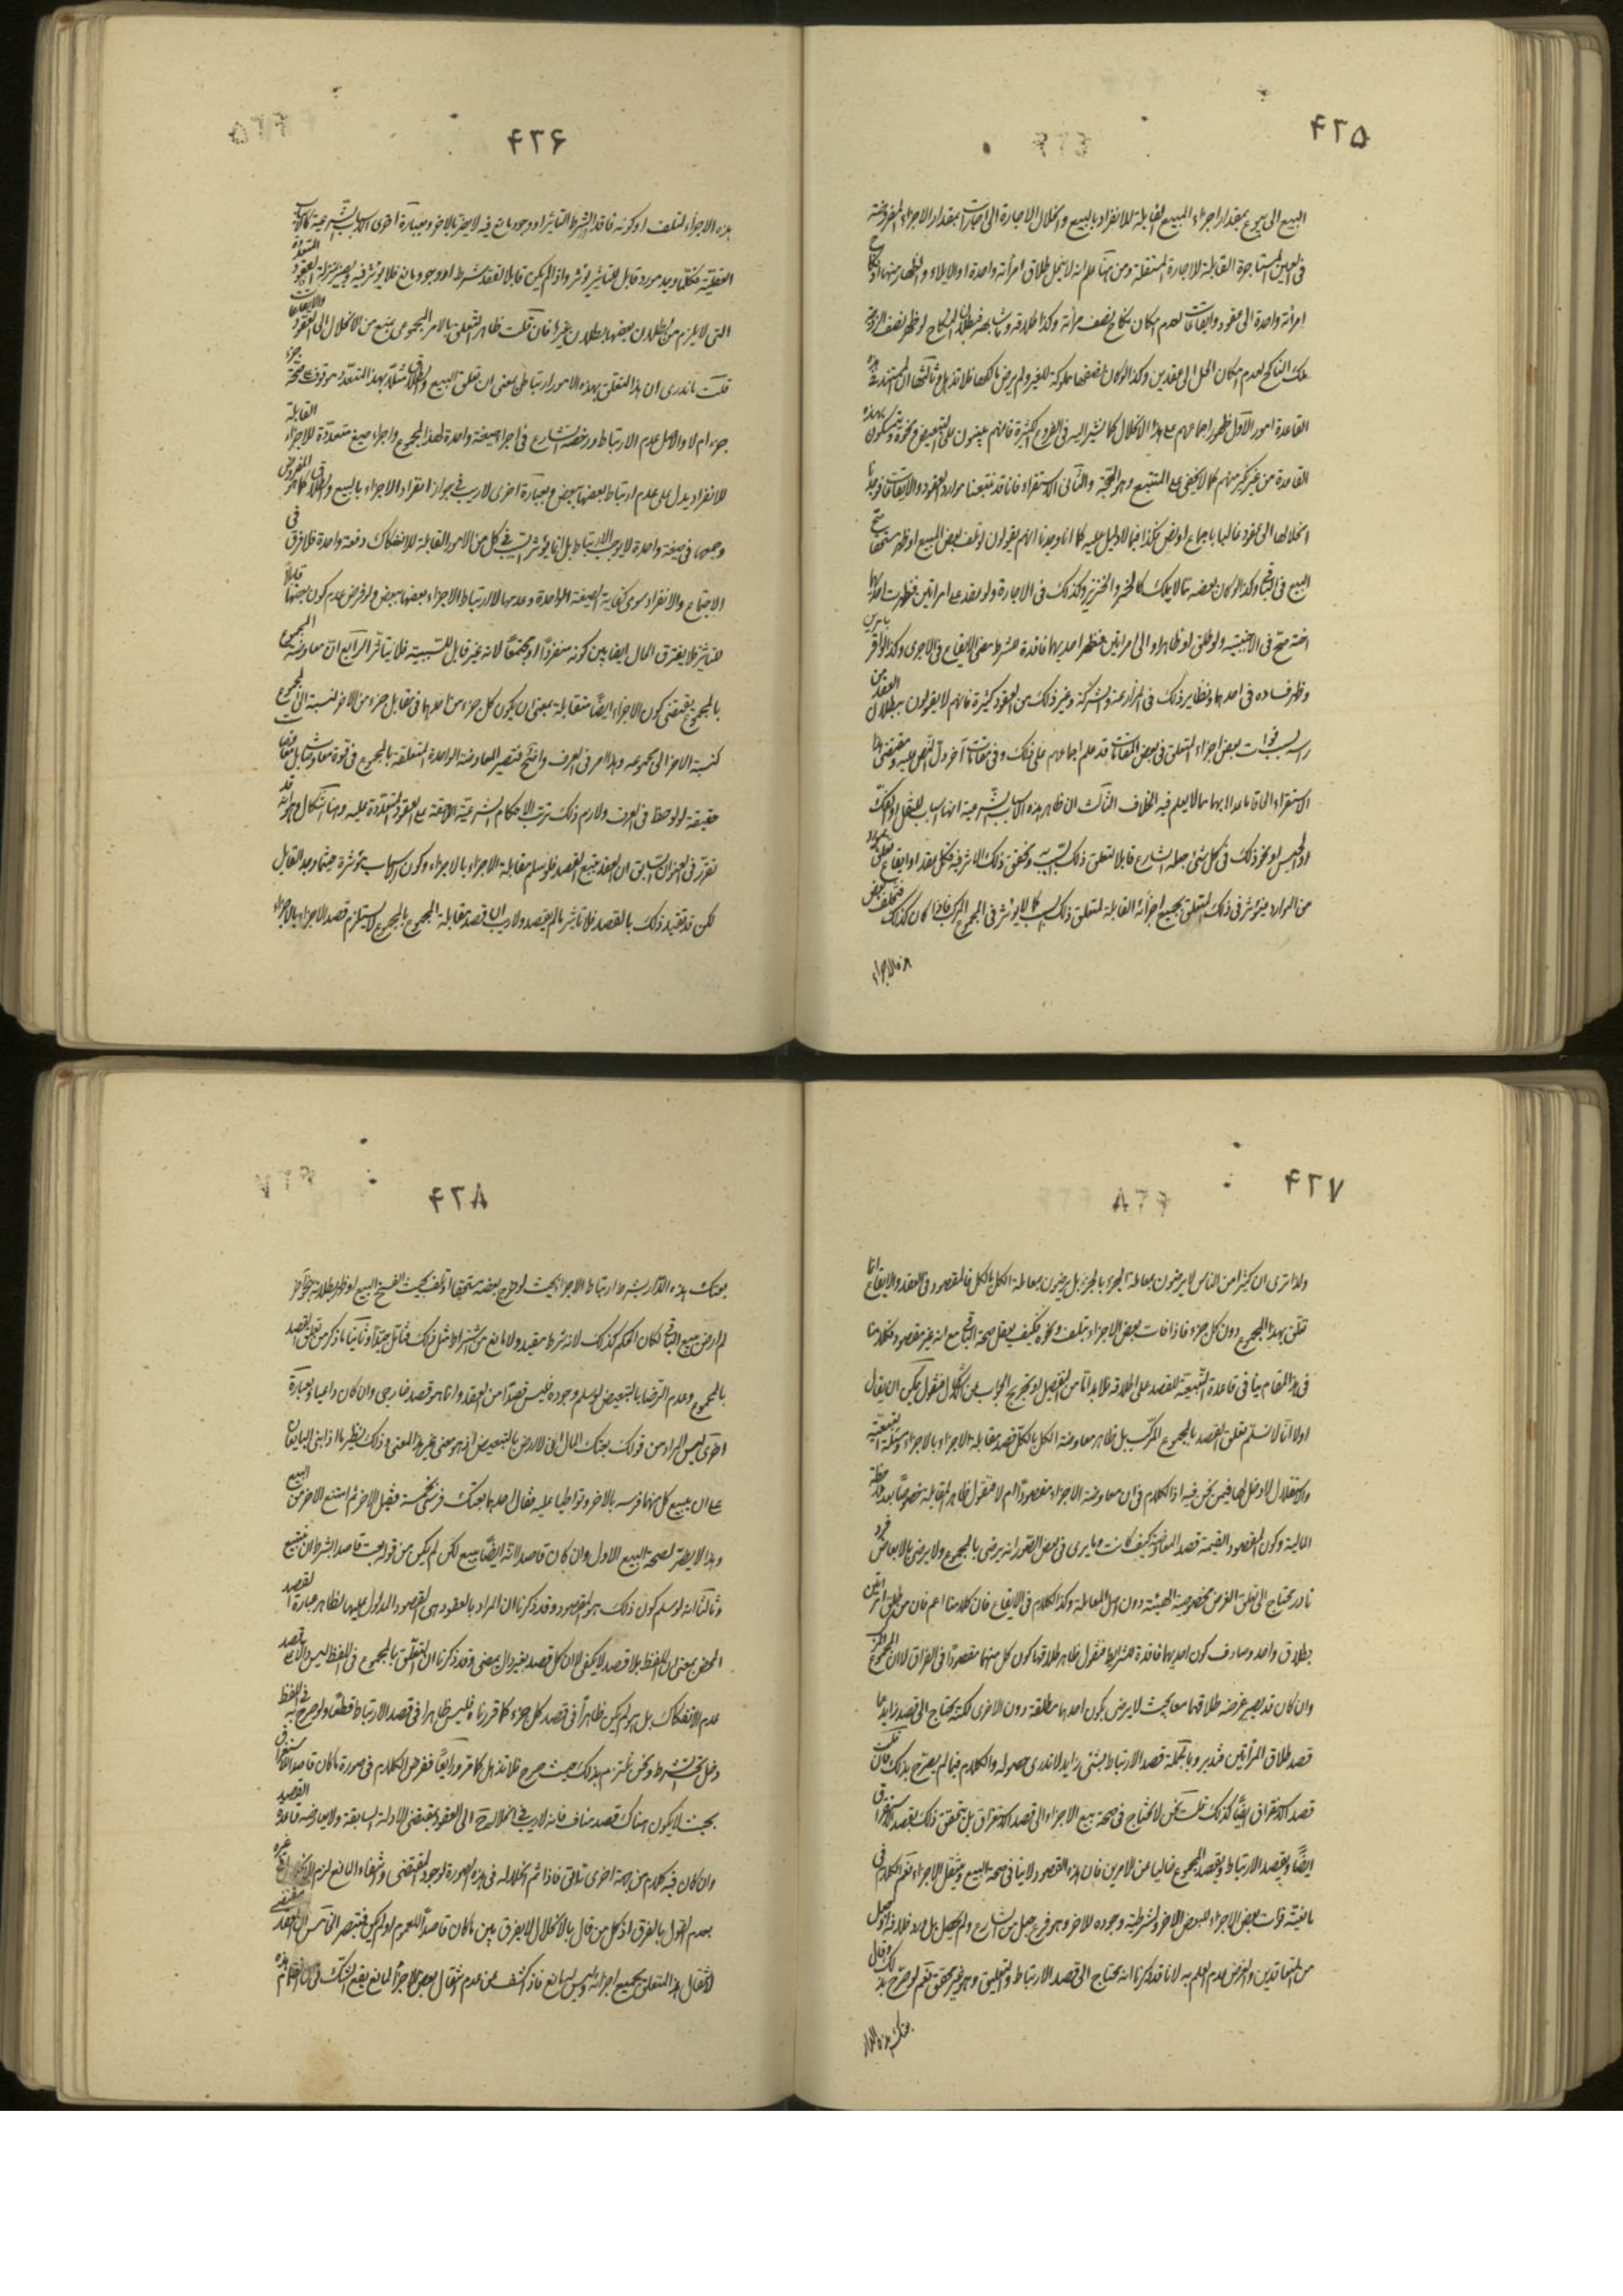 ۴۲۵
البيع الى بيوع بمقدار اجزاء المبيع القابلة للانفراد بالبيع وانحلال الاجارة الى اجارات بمقدار الاجزاء المفروضة
في العين المستاجرة القابلة للاجارة المستقلة ومن هنا علم انه لا ينحل طلاق امرأة واحدة او الايلاء والظهار منها او نكاح
امرأة واحدة الى عقود وايقاعات لعدم امكان نكاح نصف مرأة وكذا طلاقه وما شابهه فبطلان النكاح لو ظهر نصف الزوجة
ملك الناكح لعدم امكان الحل الى عقدين وكذا لو كان نصفها مملوكة للغير ولم يرض مالكها فلا تذهل وثالثها ان المستند في هذه
القاعدة امور الاول ظهور اجماعهم على هذا الانحلال كما نشير اليه في الفروع الكثيرة فانهم يبنون على التبعيض ونحوه ويتمسكون بهذه
القاعدة من غير نكير منهم كما لا يخفى على المتتبع وهو الحجة والثاني الاستقراء فانا قد تتبعنا موارد العقود والايقاعات فوجدنا
انحلالها الى عقود غالبا باجماع او نص فكذا فيما لا دليل عليه كما انا وجدنا انهم يقولون لو تلف بعض المبيع او ظهر مستحقا صح
البيع في الباقي وكذا لو كان بعضه مما لا يملك كالخمر والخنزير وكذلك في الاجارة ولو عقد على امراتين فظهرت احديهما
اخته صح في الاجنبية ولو طلق او ظاهر او الى امراتين فظهر احديهما فاقدة للشرط مضى الايقاع في الاخرى وكذا لو اقر بامرين
وظهر فساده في احدهما ونظاير ذلك في المزارعة والشركة وغير ذلك من العقود كثيرة فانهم لا يقولون ببطلان العقد من
راسه بسبب فوات بعض اجزاء المتعلق في بعض المقامات قد علم اجماعهم على ذلك وفي مقامات آخر دل النص عليه ومقتضى هذا
الاستقراء الحاق ما عداهما بهما مما لا يعلم فيه الخلاف الثالث ان ظاهر هذه الاسباب الشرعية انها اسباب للنقل او الفك
او الحبس او نحو ذلك في كل شيء جعله الشارع قابلا لتعلق ذلك السبب وتحقق ذلك الاثر فيه فكل عقد او ايقاع تعلق بمورد
من الموارد فيؤثر في ذلك المتعلق بجميع اجزائه القابلة لتعلق ذلك السبب كما يؤثر في المجموع المركب فاذا كان كذلك فتخلف بعض
هذه الاجزاء
۴۲۶
هذه الاجزاء لتلف او كونه فاقد الشرط التاثير او وجود مانع فيه لا يضر بالاخر وبعبارة اخرى الاسباب الشرعية كالاسباب
العقلية فكلما وجد مورد قابل للتاثير يؤثر واذا لم يكن قابلا لفقد شرط او وجود مانع فلا يؤثر فيه ويصير بمنزلة العقود المتعددة
التي لا يلزم من بطلان بعضها بطلان غيرها فان قلت ظاهر التعلق بالامر المجموعي يمنع من الانحلال الى العقود والايقاعات
قلت ما ندري ان هذا التعلق بهذه الامور ارتباطي بمعنى ان تعلق البيع والطلاق مثلا بهذا المتعدد موقوف صحة جزء
جزء ام لا والاصل عدم الارتباط ورخصة الشارع في اجراء صيغة واحدة لهذا المجموع واجراء صيغ متعددة للاجزاء القابلة
للانفراد يدل على عدم ارتباط بعضها ببعض وبعبارة اخرى لا ريب في جواز انفراد الاجزاء بالبيع والطلاق كما هو المفروض
وجمعها في صيغة واحدة لا يوجب الارتباط بل انما يؤثر السبب في كل من الامور القابلة للانفكاك دفعة واحدة فلا فرق في
الاجتماع والانفراد سوى كفاية الصيغة الواحدة وعدمها لا لارتباط الاجزاء بعضها ببعض ولو فرض عدم كون بعضها قابلا
للتاثير فلا يفترق الحال ايضا بين كونه منفردا او مجتمعا لانه غير قابل للسببية فلا يتاثر الرابع ان معاوضة المجموع
بالمجموع يقتضي كون الاجزاء ايضا متقابلة بمعنى ان يكون كل جزء من احدهما في مقابل جزء من الاخر لنسبة الى المجموع
كنسبة الاخر الى مجموعه وهذا امر في العرف واضح فتصير المعاوضة الواحدة المتعلقة بالمجموع في قوة معاوضات
حقيقة لو لوحظ في العرف ولازم ذلك ترتب الاحكام الشرعية اللاحقة على العقود المتعددة عليه وهنا اشكال وهو انه قد
تقرر في العنوان السابق ان العقد يتبع القصد فلو سلم مقابلة الاجزاء بالاجزاء وكون الاسباب مؤثرة حيثما وجد القابل
لكن قد تقيد ذلك بالقصد فلا تاثير ما لم يقصد ولا ريب ان قصد مقابلة المجموع بالمجموع لا يستلزم قصد الاجزاء بالاجزاء
۴۲۷
ولذا ترى ان كثيرا من الناس لا يرضون بمعاملة الجزء بالجزء بل يرضون بمعاملة الكل بالكل فالمقصود في العقد والايقاع انما
تعلق بهذا المجموع دون كل جزء فاذا فات بعض الاجزاء بتلف ونحوه فكيف يعقل صحة الباقي مع انه غير مقصود فكلامنا
في هذا المقام ينافي قاعدة التبعية للقصد على اطلاقه فلا بد اما من التفصيل او تخريج الجواب عن الاشكال فنقول يمكن ان يقال
اولا انا لا نسلم تعلق القصد بالمجموع المركب بل ظاهر معاوضة الكل بالكل قصد مقابلة الاجزاء بالاجزاء ومسئلة التبعية
والاستقلال لا دخل لها فيمن نحن فيه اذ الكلام في ان معاوضة الاجزاء مقصود ام لا فنقول ظاهر المقابلة خصوصا بعد ملاحظة
المالية وكون المقصود القيمة قصد المعاوضة كيف كانت وما يرى في بعض الصور انه يرضى بالمجموع ولا يرضى بالابعاض فرد
نادر يحتاج الى تعلق الغرض بخصوصية الهيئة دون اصل المعاملة وكذا الكلام في الايقاع فان كلامنا اعم فان من طلق امراتين
بطلاق واحد وصادف كون احديهما فاقدة للشرايط فنقول ظاهر طلاقهما كون كل منهما مقصودا في الفراق لا ان المجموع المركب
وان كان قد يصير غرضه طلاقهما معا بحيث لا يرضى بكون احدهما مطلقة دون الاخرى لكنه يحتاج الى قصد زايد عما
قصد طلاق المرأتين فتدبر وبالجملة قصد الارتباط شيء زايد لا ندري حصوله والكلام فيما لم يصرح بذلك فان قلت
قصد الاستغراق ايضا كذلك قلت نحن لا نحتاج في صحة بيع الاجزاء الى قصد الاستغراق بل يتحقق ذلك بقصد الاستغراق
ايضا وبقصد الارتباط وبقصد المجموع خاليا عن الامرين فان هذه القصود لا ينافي صحة البيع ونقل الاجزاء نعم الكلام في
مانعية فوات بعض الاجزاء للبعض الاخر وشرطية وجوده للاخر وهو فرع جعل من الشارع ولم يحصل بل ورد خلافه او جعل
من المتعاقدين والفرض عدم العلم به لانا قد ذكرنا انه يحتاج الى قصد الارتباط والتعليق وهو غير محقق نعم لو صرح بذلك وقال
بعتك هذه الدار
۴۲۸
بعتك هذه الدار بشرط ارتباط الاجزاء بحيث لو خرج بعضه مستحقا او تلف بحيث انفسخ البيع او ظهر بطلانه في جزء
لم ارض ببيع الباقي لكان الحكم كذلك لانه شرط مفيد ولا مانع من اشتراط مثل ذلك فتامل جيدا وثانيا ما ذكر من تعلق القصد
بالمجموع وعدم الرضا بالتبعيض لو سلم وجوده فليس قصدا من العقد وانما هو قصد خارجي وان كان داعيا وبعبارة
اخرى ليس المراد من قولك بعتك المال اني لا ارضى بالتبعيض اذ هو معنى غير هذا المعنى وذلك نظير ما اذا بنى البايعان
على ان يبيع كل منهما فرسه بالاخر وتواطيا عليه فقال احدهما بعتك فرسي بخمسة فقبل الاخر ثم امتنع الاخر من البيع
وهذا لا يضر لصحة البيع الاول وان كان قاصدا لانه ايضا يبيع لكن لم يكن من قوله بعت قاصدا لشرط ان تبيع
وثالثا انه لو سلم كون ذلك هو المقصود وقد ذكرنا ان المراد بالعقود هي القصود المدلول عليها بظاهر عبارة القصد
المحض بمعنى ان اللفظ بلا قصد لا يكفي لا ان كل قصد بغير دال يمضي وقد ذكرنا ان التعلق بالمجموع في اللفظ ليس دالا على قصد
عدم الانفكاك بل هو لو لم يكن ظاهرا في قصد كل جزء كما قررناه فليس ظاهرا في قصد الارتباط قطعا ولو صرح به في اللفظ
دخل تحت الشرط ونحن نلتزم بذلك حيث صرح فلا تذهل كما مر ورابعا نفرض الكلام في صورة ما كان قاصدا للاستغراق
بحيث لا يكون هناك قصد مناف فانه لا ريب في انحلاله ح الى العقود بمقتضى الادلة السابقة ولا يعارضه قاعدة القصد
وان كان فيه كلام من جهة اخرى تلاقي فاذا تم انحلاله في هذه الصورة لوجود المقتضي وانتفاء المانع لزم الانحلال في غيره
بعدم القول بالفرق اذ كل من قال بالانحلال لا يفرق بين ما كان قاصدا للعموم او لم يكن فتبصر الخامس ان العقد مقتضى
لانتقال هذا المتعلق بجميع اجزائه وليس له مانع فاذا كشف عن عدم انتقال بعض الاجزاء لمانع يقع الشك في ان انضمام هذه